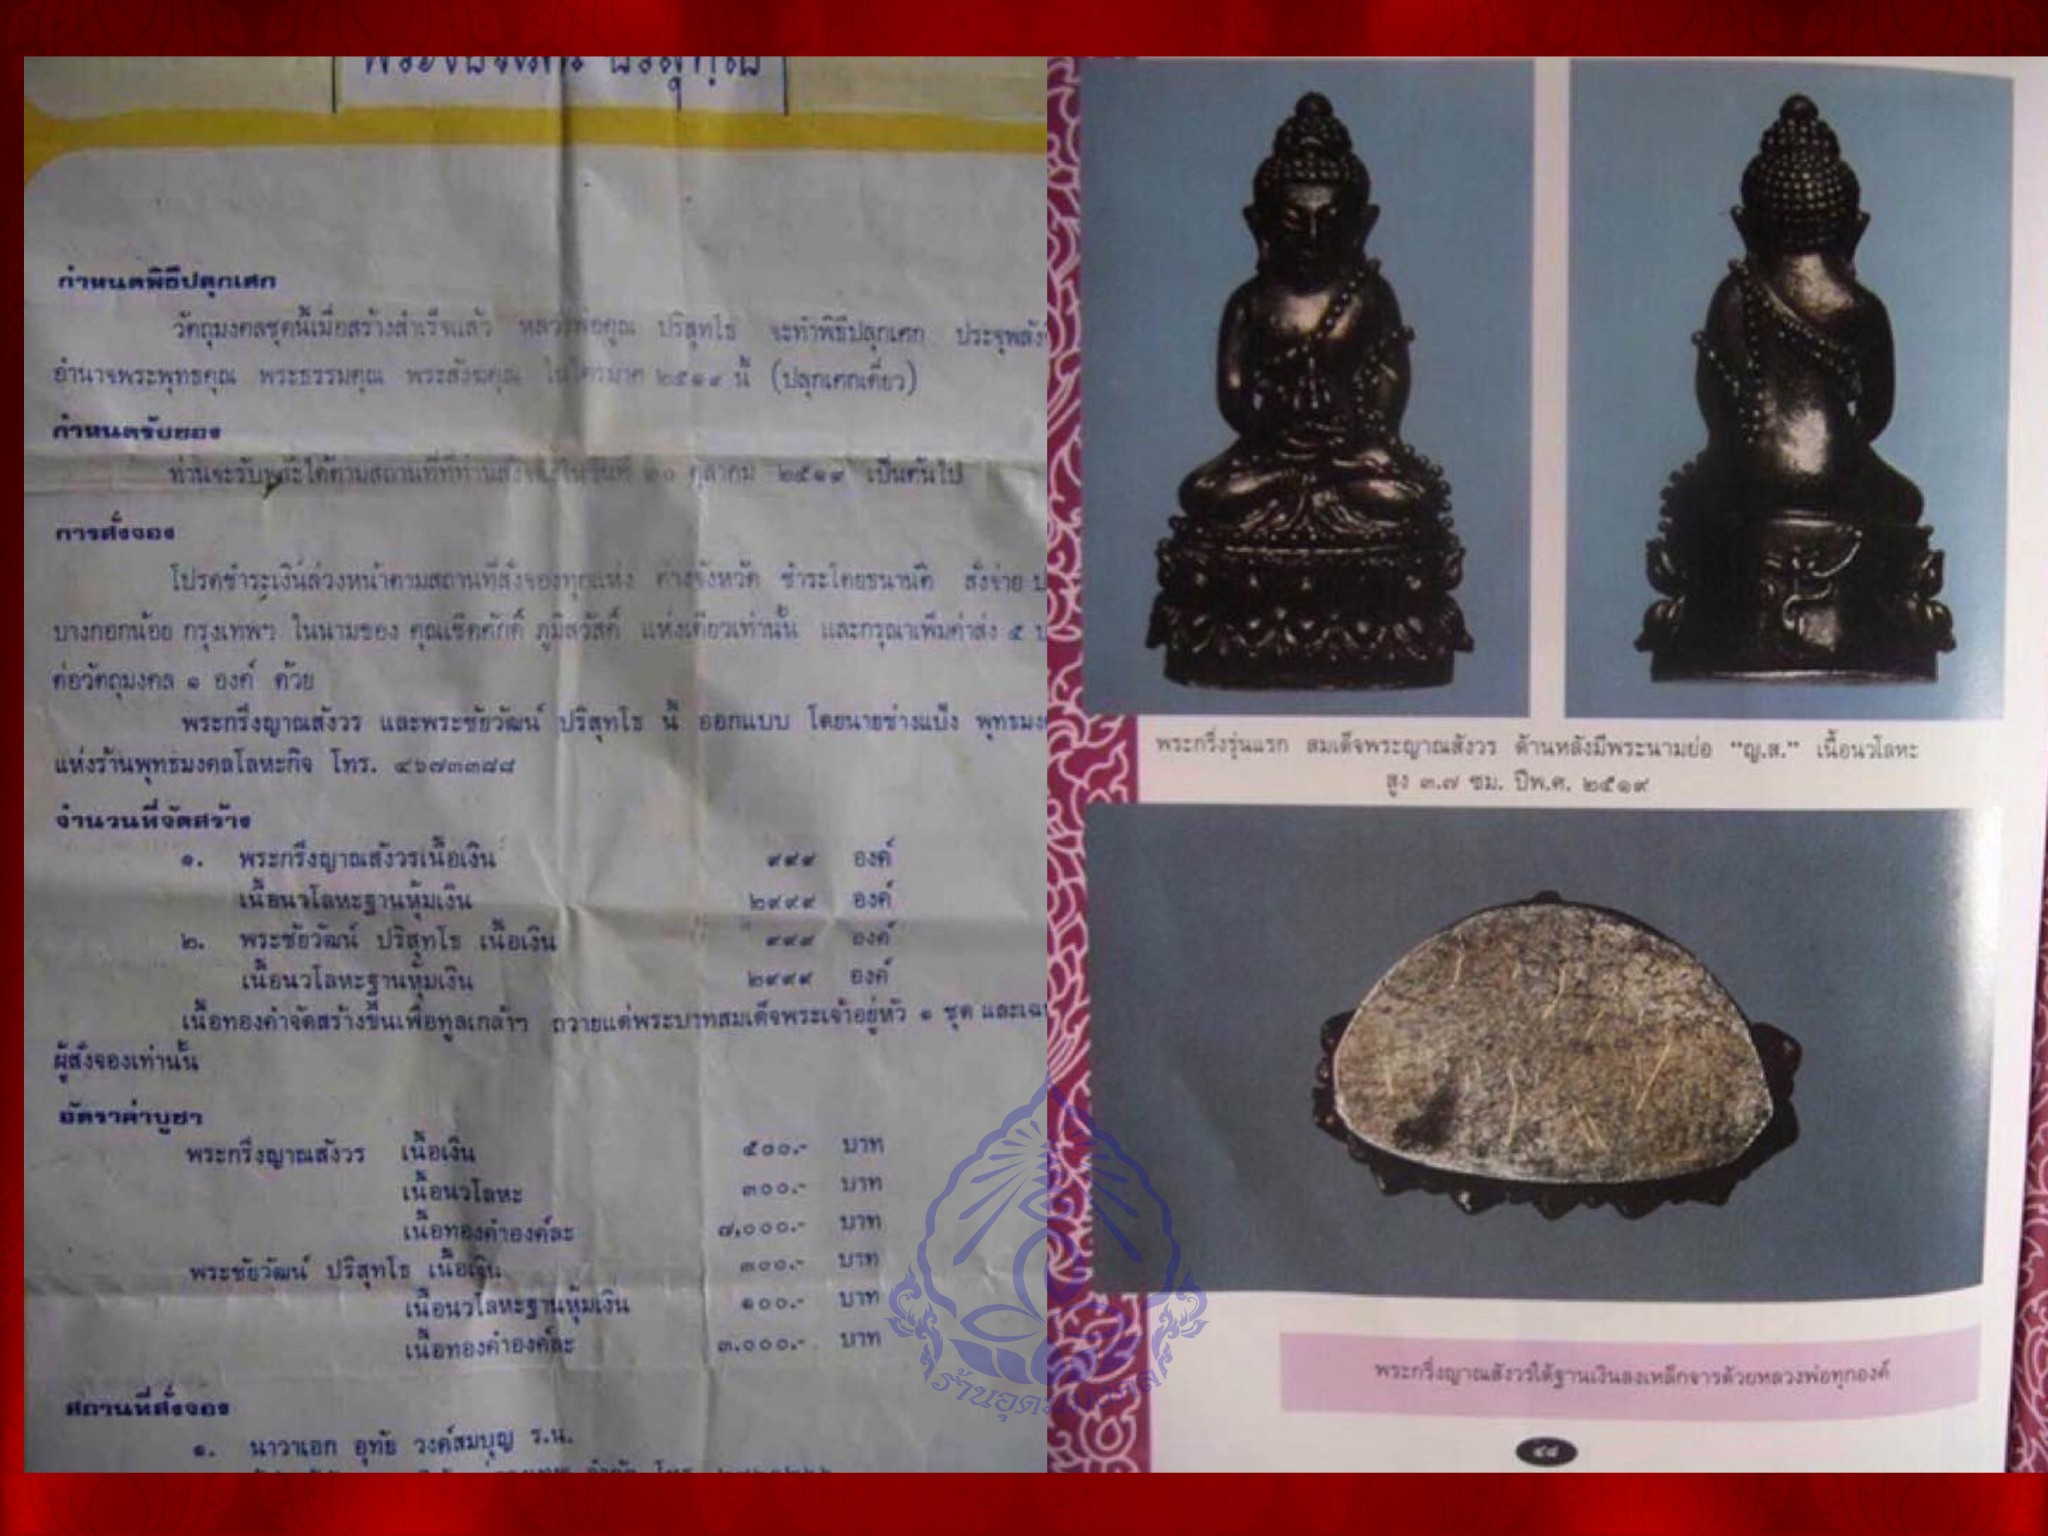 กำหนดพิธีปลุกเศก
วัตถุมงคลชุดนี้เมื่อสร้างสำเร็จแล้ว หลวงพ่อคุณ ปริสุทโธ จะทำพิธีปลุกเศก ประจุพลัง
อำนาจพระพุทธคุณ พระธรรมคุณ พระสังฆคุณ ในไตรมาศ ๒๕๑๙ นี้ (ปลุกเศกเดี่ยว)
กำหนดรับของ
ท่านจะรับพระได้ตามสถานที่ที่ท่านสั่งจองในวันที่ ๒๐ ตุลาคม ๒๕๑๙ เป็นต้นไป
การสั่งจอง
โปรดชำระเงินล่วงหน้าตามสถานที่สั่งจองทุกแห่ง ต่างจังหวัด ชำระโดยธนาณัติ สั่งจ่าย ป
บางกอกน้อย กรุงเทพฯ ในนามของ คุณเชิดศักดิ์ ภูมิสวัสดิ์ แห่งเดียวเท่านั้น และกรุณาเพิ่มค่าส่ง ๕ บ
ต่อวัตถุมงคล ๑ องค์ ด้วย
พระกริ่งญาณสังวร และพระชัยวัฒน์ ปริสุทโธ นี้ ออกแบบ โดยนายช่างแป๊ง พุทธมง
แห่งร้านพุทธมงคลโลหะกิจ โทร. ๔๖๗๓๓๘๘
จำนวนที่จัดสร้าง
๑. พระกริ่งญาณสังวรเนื้อเงิน ๙๙๙ องค์
เนื้อนวโลหะฐานหุ้มเงิน ๒๙๙๙ องค์
๒. พระชัยวัฒน์ ปริสุทโธ เนื้อเงิน ๙๙๙ องค์
เนื้อนวโลหะฐานหุ้มเงิน ๒๙๙๙ องค์
เนื้อทองคำจัดสร้างขึ้นเพื่อทูลเกล้าฯ ถวายแด่พระบาทสมเด็จพระเจ้าอยู่หัว ๑ ชุด และเฉ
ผู้สั่งจองเท่านั้น
อัตราค่าบูชา
พระกริ่งญาณสังวร เนื้อเงิน ๕๐๐.- บาท
เนื้อนวโลหะ ๓๐๐.- บาท
เนื้อทองคำองค์ละ ๗,๐๐๐.- บาท
พระชัยวัฒน์ ปริสุทโธ เนื้อเงิน ๓๐๐.- บาท
เนื้อนวโลหะฐานหุ้มเงิน ๑๐๐.- บาท
เนื้อทองคำองค์ละ ๓,๐๐๐.- บาท
สถานที่สั่งจอง
๑. นาวาเอก อุทัย วงค์สมบุญ ร.น.
พระกริ่งรุ่นแรก สมเด็จพระญาณสังวร ด้านหลังมีพระนามย่อ “ญ.ส.” เนื้อนวโลหะ
สูง ๓.๗ ซม. ปีพ.ศ. ๒๕๑๙
พระกริ่งญาณสังวรใต้ฐานเงินลงเหล็กจารด้วยหลวงพ่อทุกองค์
๕๘